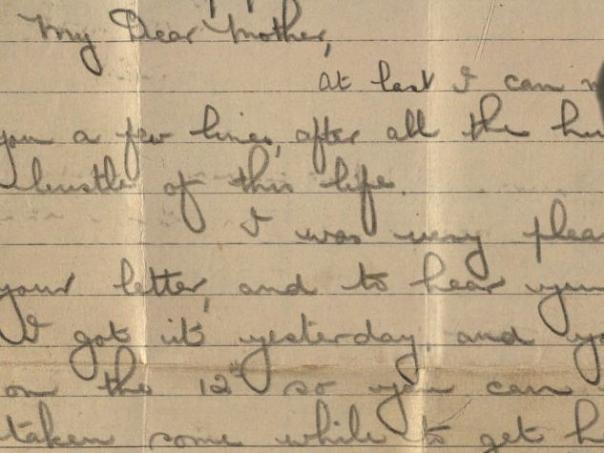 My Dear Mother,
at last I can
you a few lines, after all the
bustle of this life.
I was very
your letter, and to hear
I got it yesterday, and
on the 12th so you can
taken some while to get